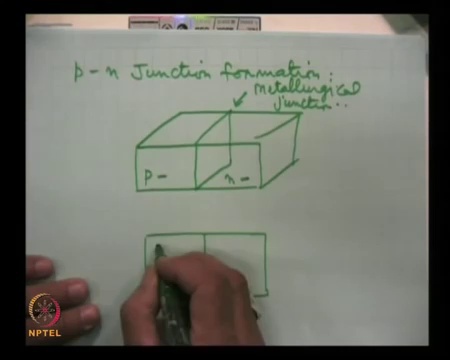 p-n Junction formation:
metallurgical
junction..
p-
n-
NPTEL